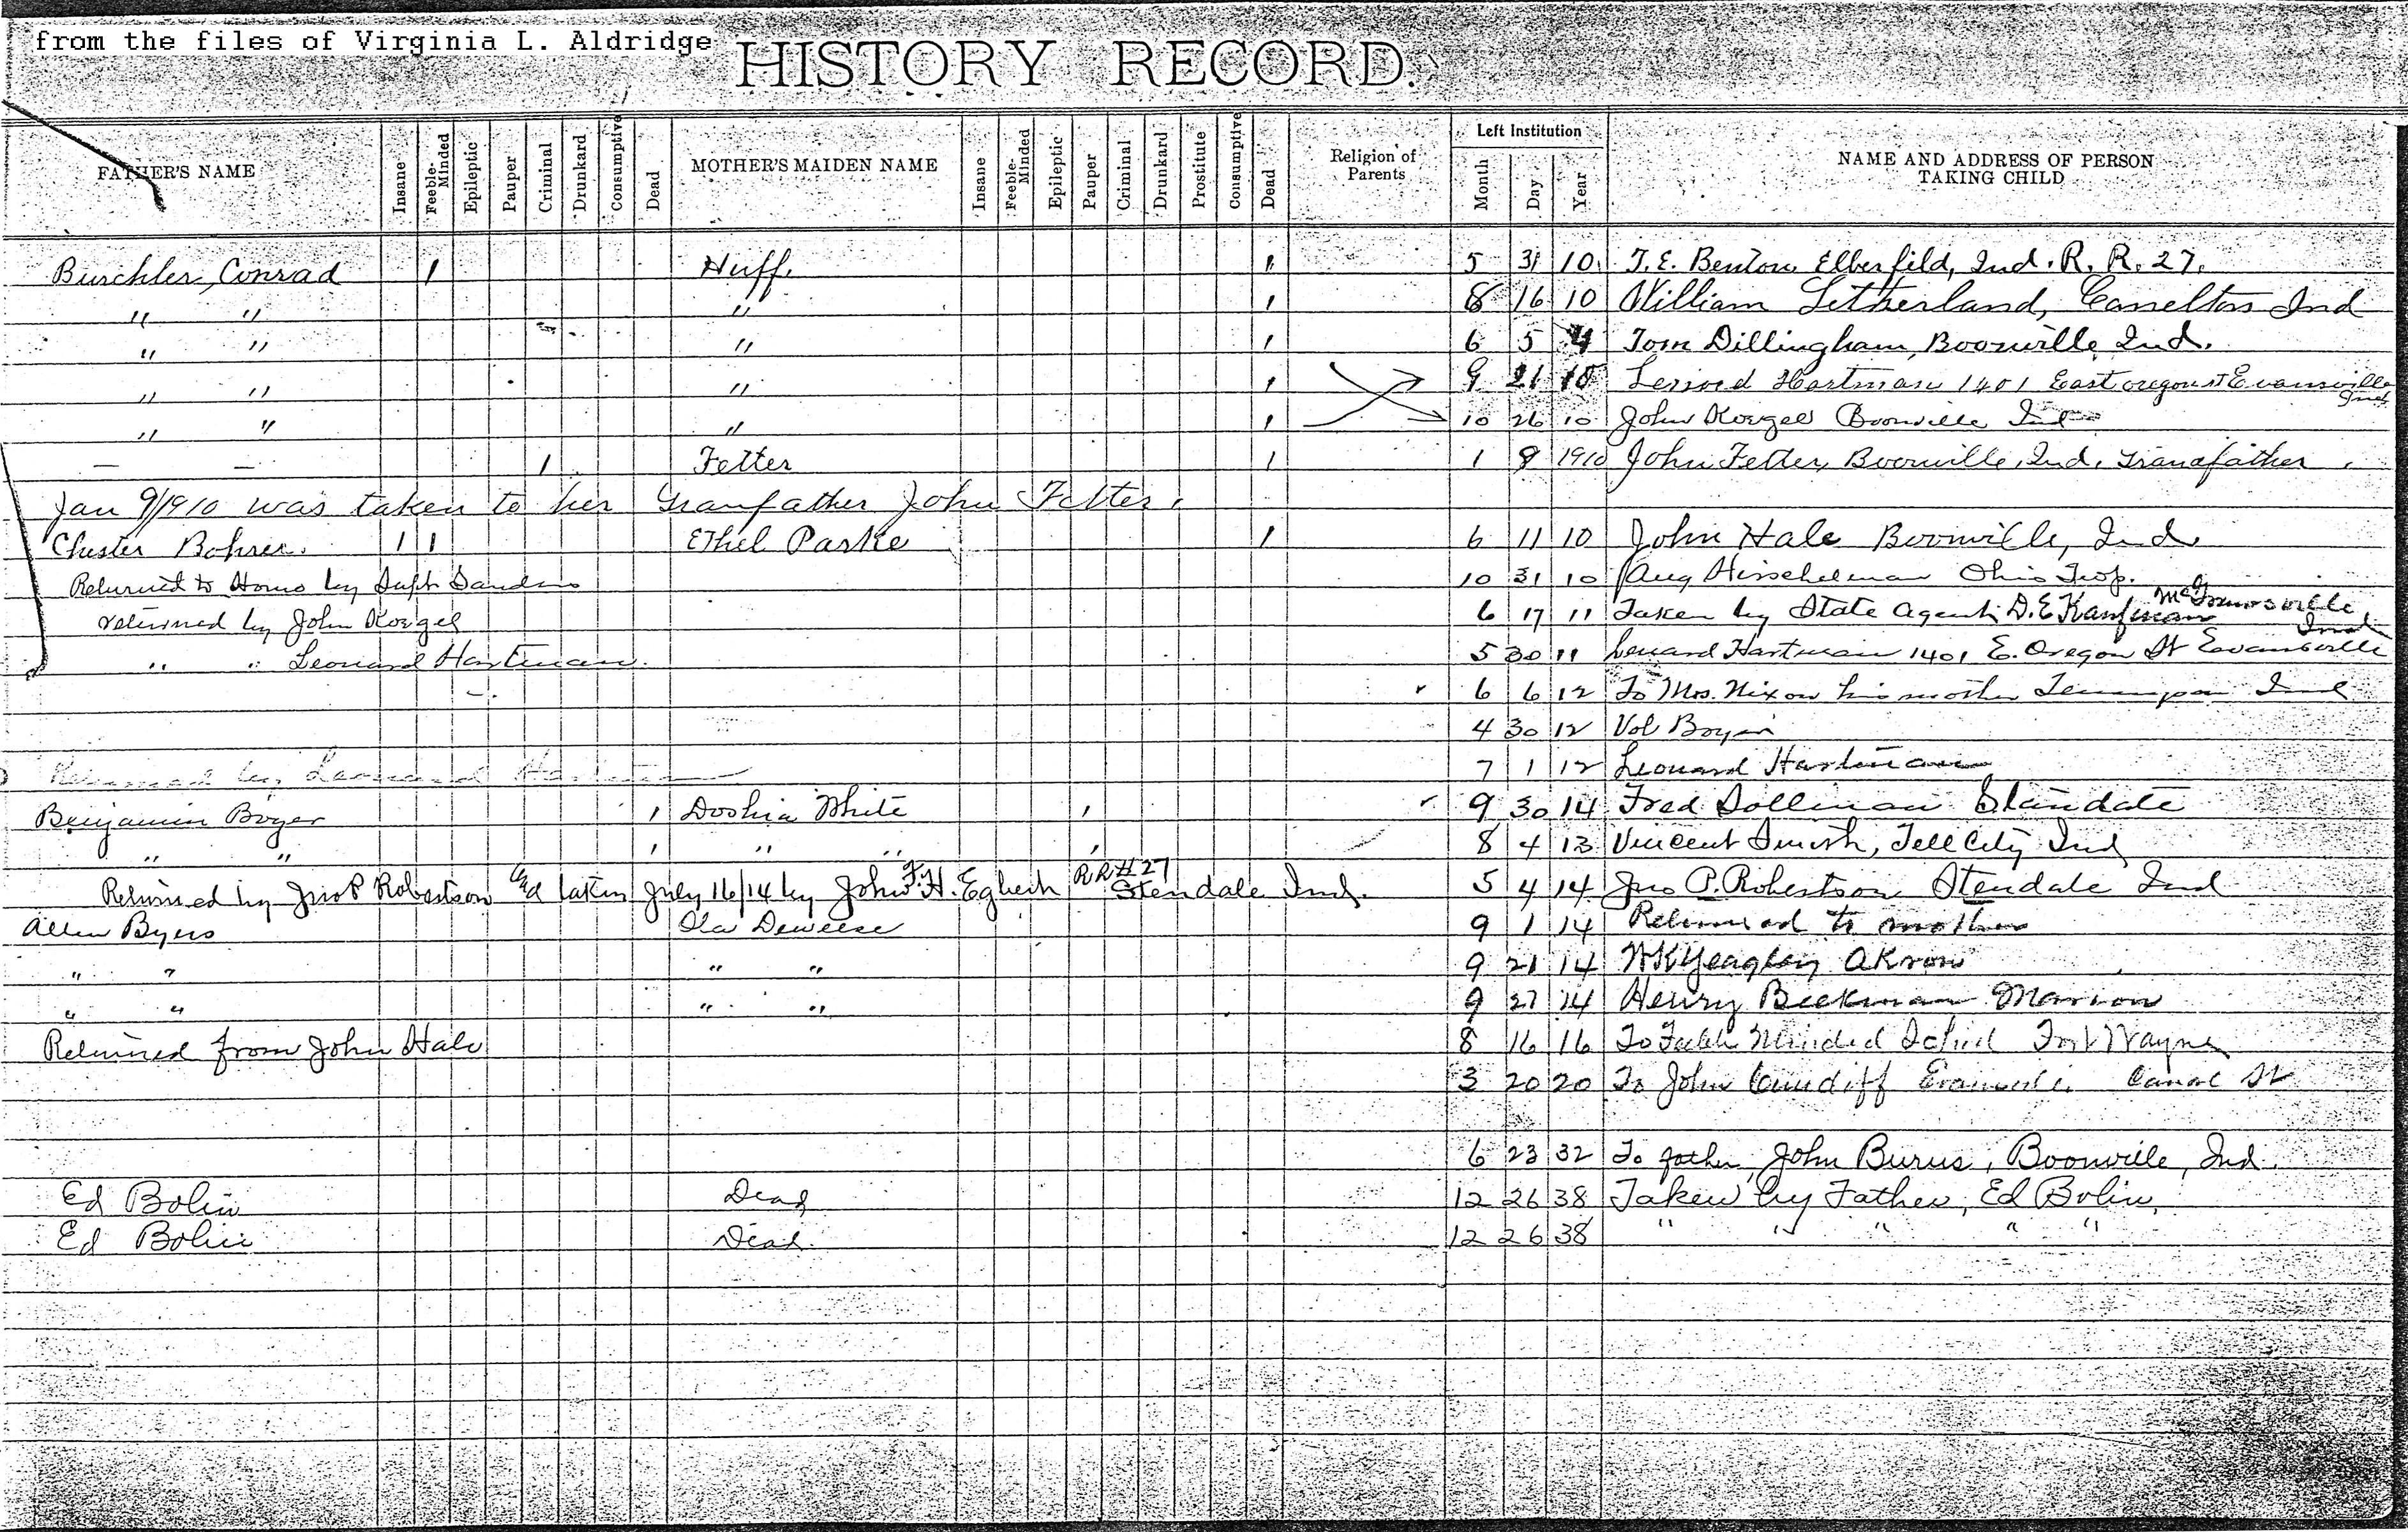 from the files of Virginia L. Aldridge
HISTORY RECORD.
FATHER'S NAME Insane Feeble-Minded Epileptic Pauper Criminal Drunkard Consumptive Dead MOTHER'S MAIDEN NAME Insane Feeble-Minded Epileptic Pauper Criminal Drunkard Prostitute Consumptive Dead Religion of Parents Left Institution Month Day Year NAME AND ADDRESS OF PERSON TAKING CHILD
Burchler, Conrad 1 Huff. 1 5 31 10 T. E. Benton Elberfild, Ind. R. R. 27.
" " " 1 8 16 10 William Litherland, Cannelton Ind
" " " 1 6 5 4 Tom Dillingham, Boonville Ind.
" " " 1 9 21 10 Hartman 1401 East oregon st Evansville Ind
" " " 1 10 26 10 John Korgel Boonville Ind
— — 1 Fetter 1 1 8 1910 John Fetter, Boonville, Ind. Granafather
Jan 9/1910 was taken to her Granfather John Fetter.
Chester Bohrer. 1 1 Ethel Parke 1 6 11 10 John Hale Boonville, Ind
Returned to Home by Supt 10 31 10 Aug Hirschelman Ohio Twp.
returned by John Korgel 6 17 11 Taken by State Agent D. E Kaufman Ind
" " Leonard Hartman. 5 30 11 Lenard Hartman 1401 E. Oregon St Evansville
6 6 12 To Mrs. Nixon his mother Ind
4 30 12 Vol
Returned by Leonard 7 1 12 Leonard Hartman
Benjamin Boyer 1 Doshia White 1 9 30 14 Fred
" " 1 " " 1 8 4 13 Vincent Smith, Tell City Ind
Returned by Jno P Robertson and taken July 16/14 by John F. H. Egbert RR#27 Stendale Ind. 5 4 14 Jno P. Robertson Stendale Ind
Allen Byers Ola Deweese 9 1 14 Returned to mother
" " " " 9 21 14 Yeagley Akron
" " " " 9 27 14 Henry Beekman Marion
Returned from John Hale 8 16 16 To Feeble Minded School Fort Wayne
3 20 20 To John Cundiff Canal St
6 23 32 To father, John Burns, Boonville, Ind.
Ed Bolin Dead 12 26 38 Taken by Father, Ed Bolin,
Ed Bolin Dead. 12 26 38 " " " " "